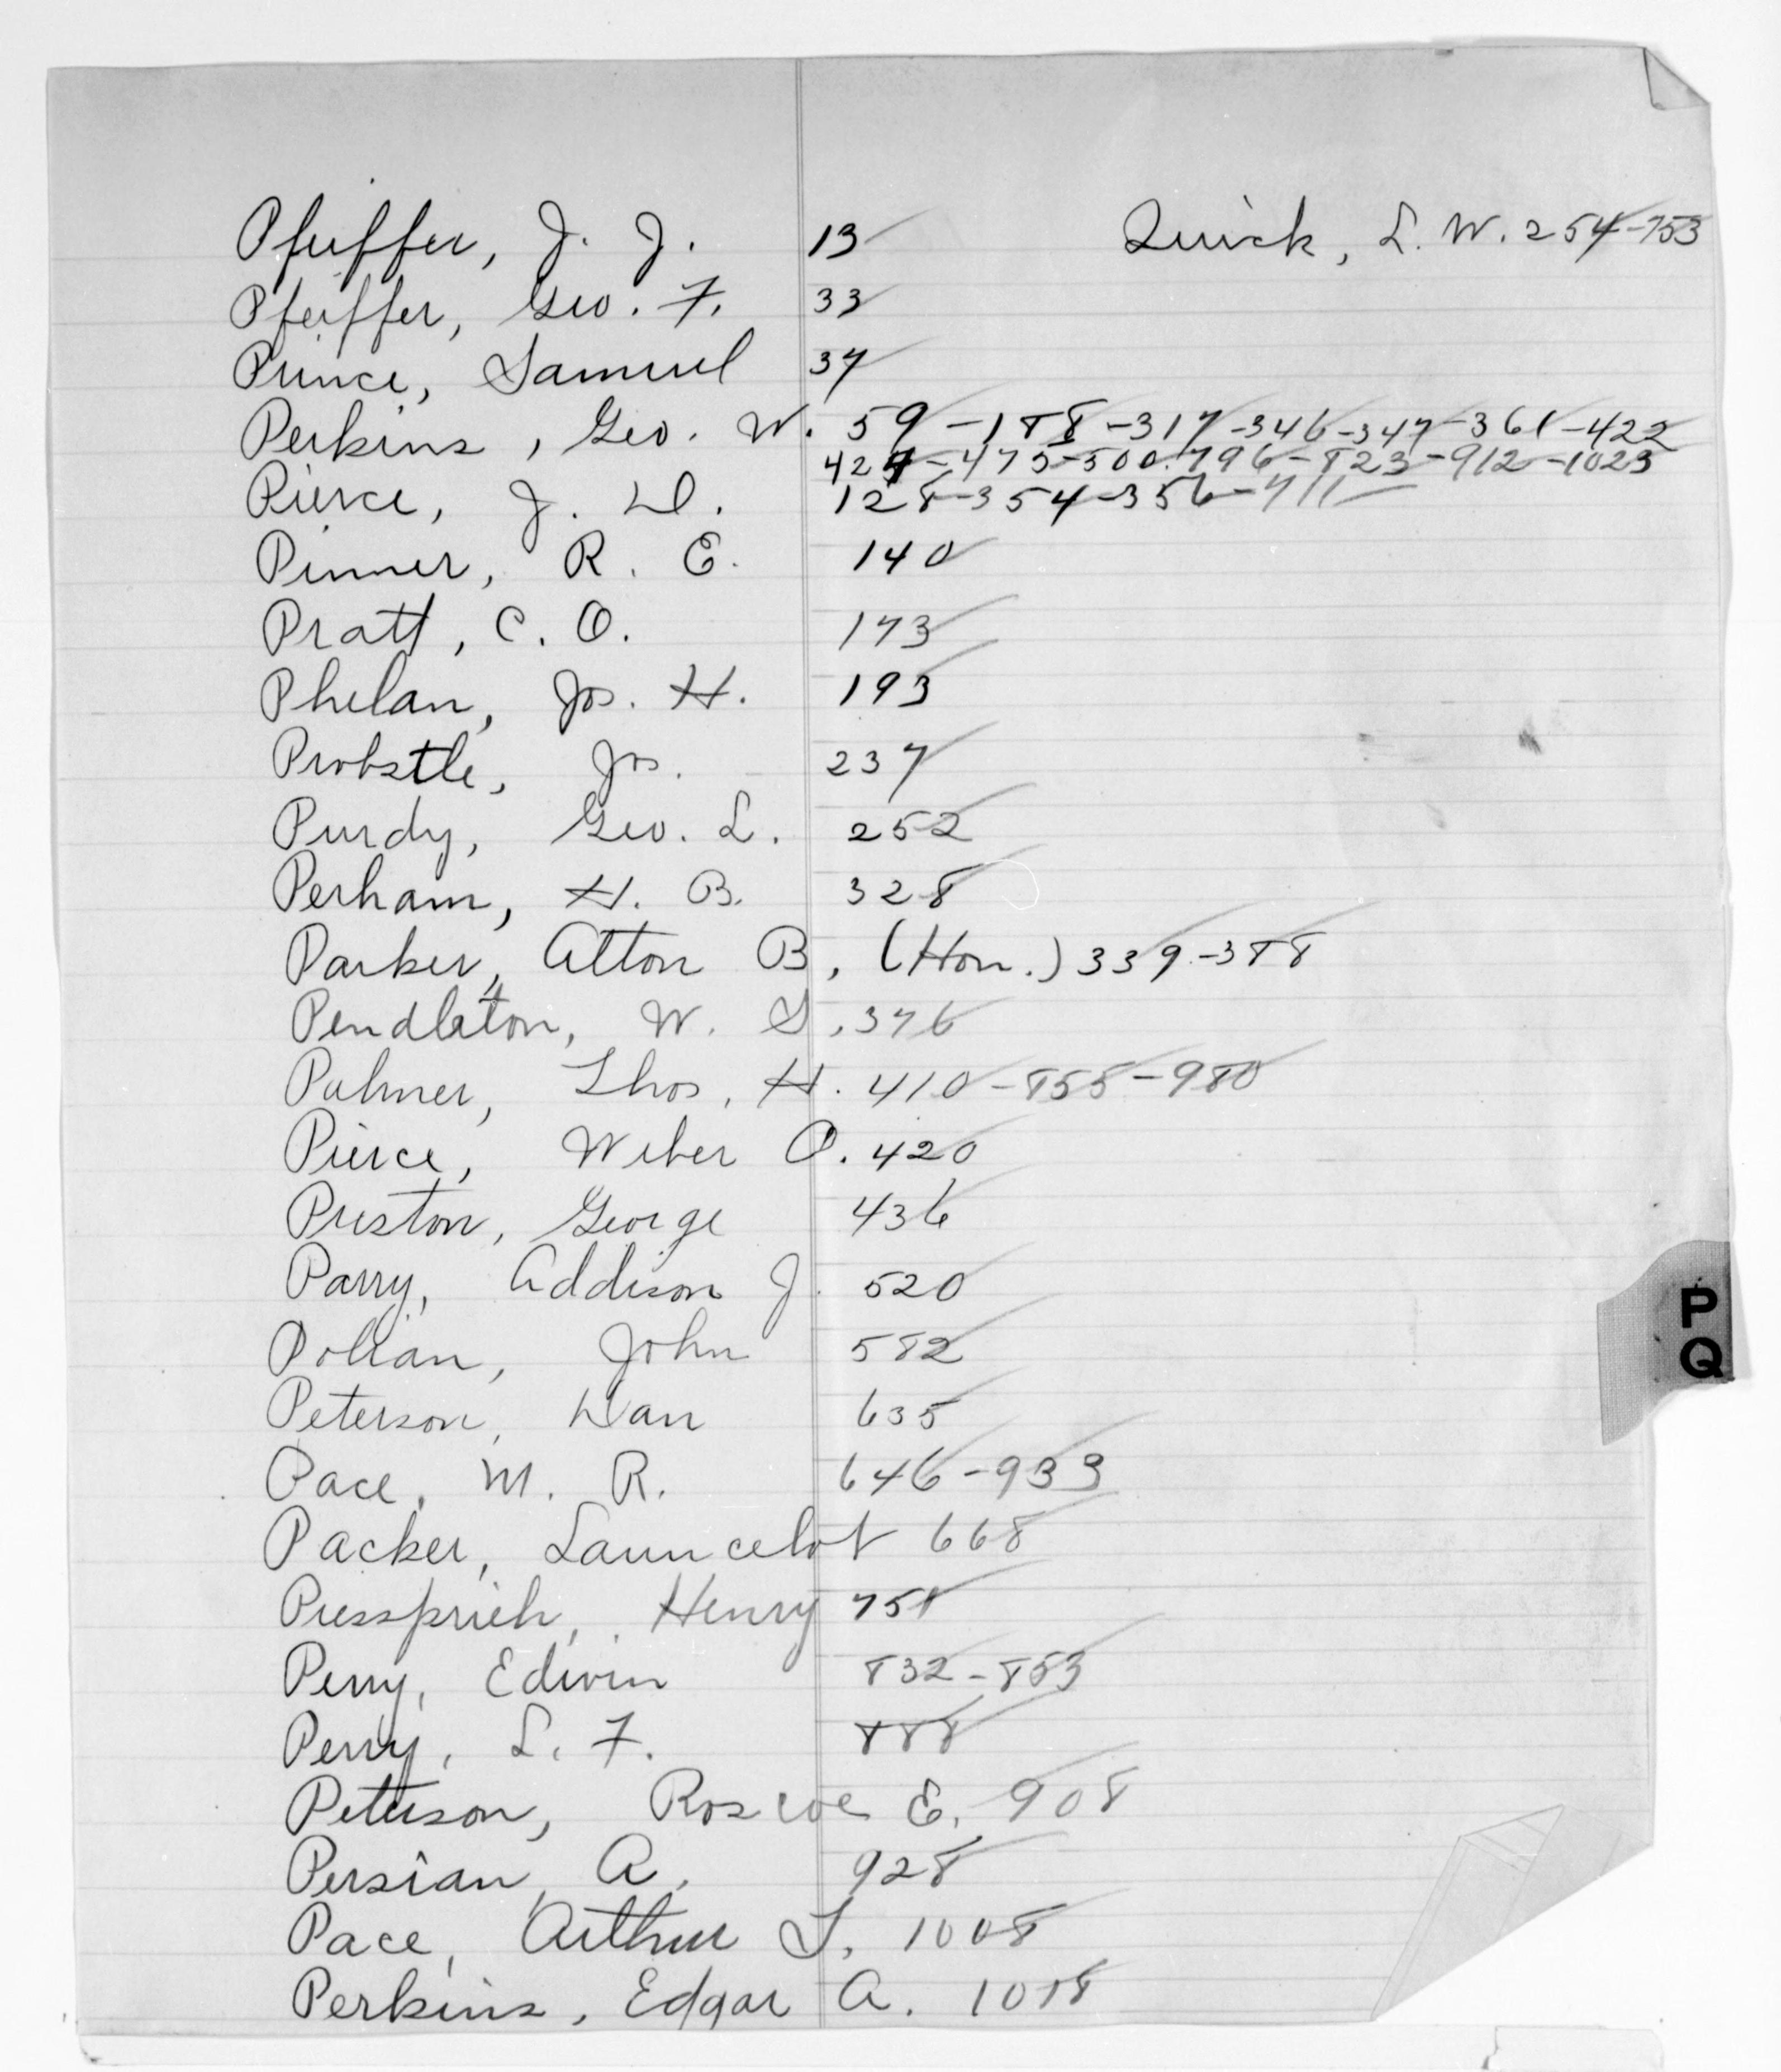 Pfeiffer, J. J. 13
Quick, L. W. 254-753
Pfeiffer, Geo. F. 33
Prince, Samuel 37
Perkins, Geo. W. 59-188-317-346-347-361-422
424-475-500-796-823-912-1023
Pierce, J. D. 128-354-356-711
Pinner, R. E. 140
Pratt, C. O. 173
Phelan, Jos. H. 193
Probstle, Jos. 237
Purdy, Geo. L. 252
Perham, H. B. 328
Parker, Alton B. (Hon.) 339-388
Pendleton, W. S. 376
Palmer, Thos. H. 410-855-980
Pierce, Weber O. 420
Preston, George 436
Parry, Addison J. 520
Polian, John 582
Peterson, Dan 635
Pace, M. R. 646-933
Packer, Launcelot 668
Pressprich, Henry 751
Perry, Edwin 832-853
Perry, L. F. 888
Peterson, Roscoe E. 908
Persian, A. 928
Pace, Arthur T. 1008
Perkins, Edgar A. 1018
P
Q